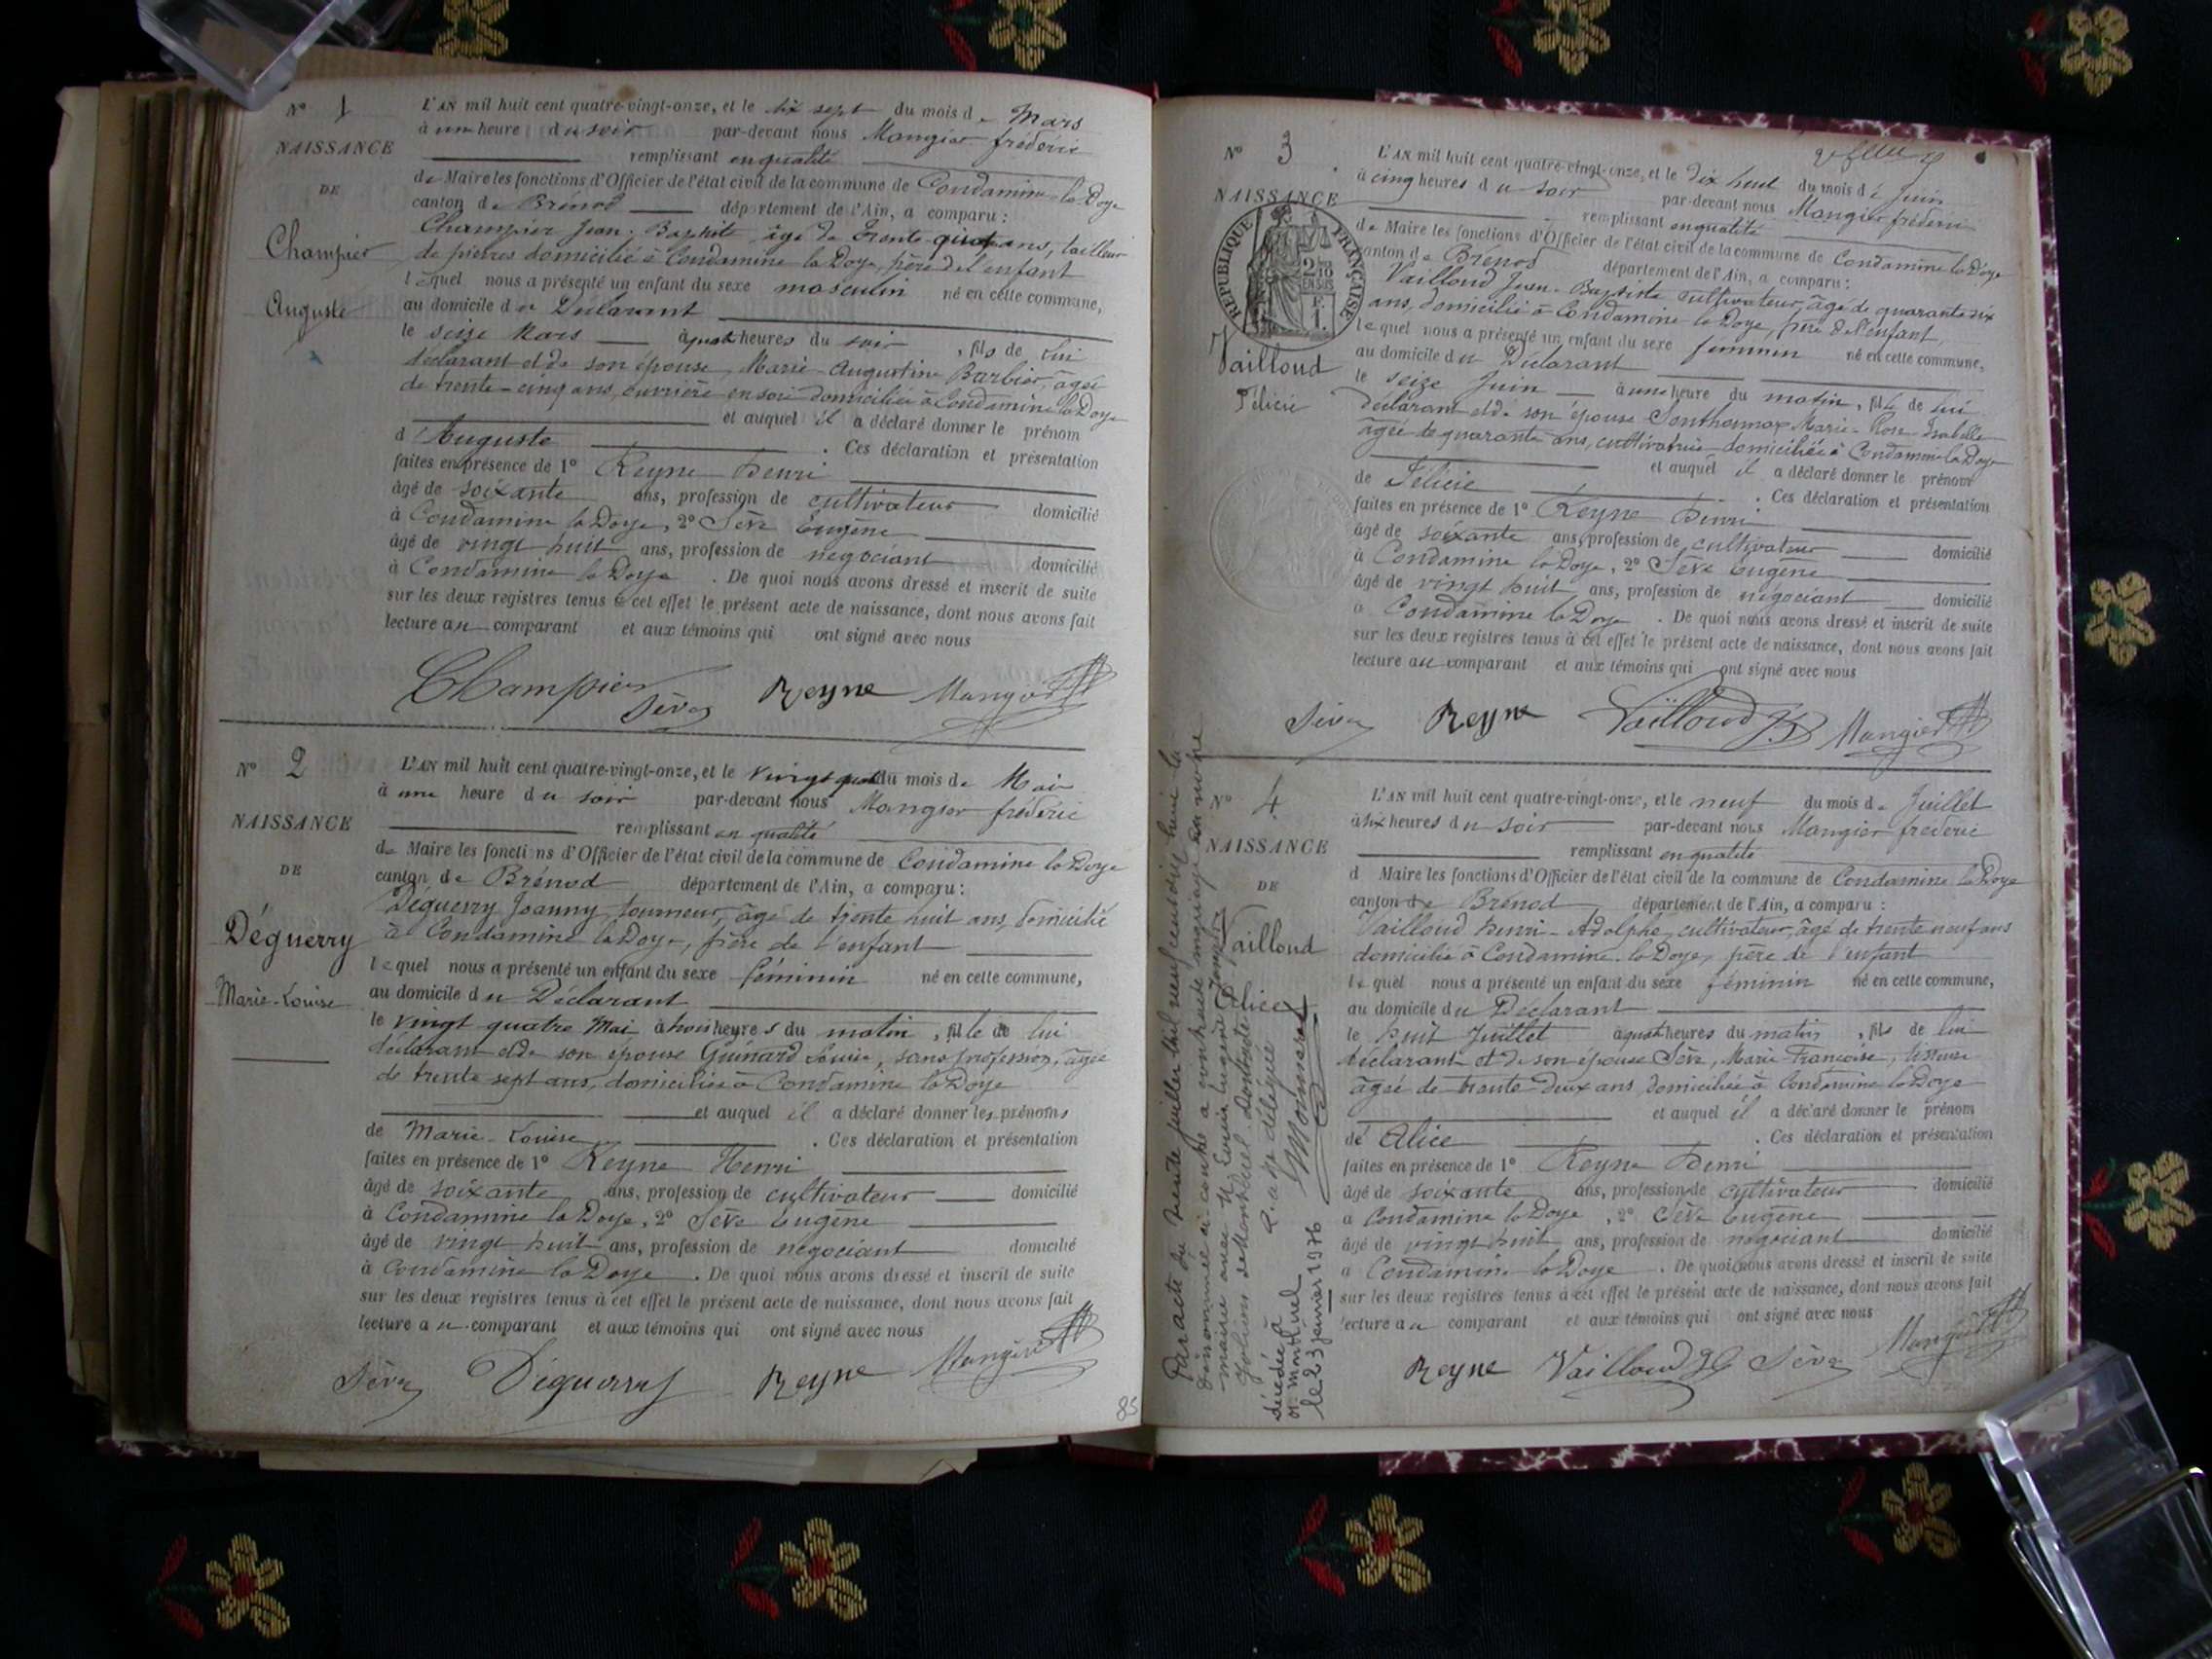 N° 1
NAISSANCE
DE
Champier
Auguste
L'AN mil huit cent quatre-vingt-onze, et le dix sept du mois de Mars
à une heure du soir par-devant nous Mangier frédéric
remplissant en qualité
de Maire les fonctions d'Officier de l'état civil de la commune de Condamine la Doye
canton de Brénod département de l'Ain, a comparu :
Champier Jean-Baptiste âgé de trente ans, tailleur
de pierres domicilié à Condamine la Doye, père de l'enfant
lequel nous a présenté un enfant du sexe masculin né en cette commune,
au domicile du Déclarant
le seize Mars à heures du soir, fils de lui
déclarant et de son épouse, Marie Augustine Barbier, âgée
de trente-cinq ans, ouvrière en soie domiciliée à Condamine la Doye
et auquel il a déclaré donner le prénom
d'Auguste . Ces déclaration et présentation
faites en présence de 1° Reyne henri
âgé de soixante ans, profession de cultivateur domicilié
à Condamine la Doye, 2° Sève Eugène
âgé de vingt huit ans, profession de négociant domicilié
à Condamine la Doye . De quoi nous avons dressé et inscrit de suite
sur les deux registres tenus à cet effet le présent acte de naissance, dont nous avons fait
lecture au comparant et aux témoins qui ont signé avec nous
Champier Sève Reyne Mangier
N° 2
NAISSANCE
DE
Déguerry
Marie-Louise
L'AN mil huit cent quatre-vingt-onze, et le vingt quatre du mois de Mai
à une heure du soir par-devant nous Mangier frédéric
remplissant en qualité
de Maire les fonctions d'Officier de l'état civil de la commune de Condamine la Doye
canton de Brénod département de l'Ain, a comparu :
Déguerry Joanny, tourneur, âgé de trente huit ans, domicilié
à Condamine la Doye, père de l'enfant
lequel nous a présenté un enfant du sexe féminin né en cette commune,
au domicile du Déclarant
le vingt quatre Mai à trois heures du matin, fille de lui
déclarant et de son épouse Guinard Louise, sans profession, âgée
de trente sept ans, domiciliée à Condamine la Doye
et auquel il a déclaré donner les prénoms
de Marie-Louise . Ces déclaration et présentation
faites en présence de 1° Reyne Henri
âgé de soixante ans, profession de cultivateur domicilié
à Condamine la Doye, 2° Sève Eugène
âgé de vingt huit ans, profession de négociant domicilié
à Condamine la Doye . De quoi nous avons dressé et inscrit de suite
sur les deux registres tenus à cet effet le présent acte de naissance, dont nous avons fait
lecture au comparant et aux témoins qui ont signé avec nous
Sève Déguerry Reyne Mangier
85
N° 3
NAISSANCE
REPUBLIQUE FRANÇAISE
2/10 EN SUS
1 F.
Vailloud
Félicie
L'AN mil huit cent quatre-vingt-onze, et le dix huit du mois de Juin
à cinq heures du soir par-devant nous Mangier frédéric
remplissant en qualité
de Maire les fonctions d'Officier de l'état civil de la commune de Condamine la Doye
canton de Brénod département de l'Ain, a comparu :
Vailloud Jean-Baptiste cultivateur, âgé de quarante six
ans, domicilié à Condamine la Doye, père de l'enfant,
lequel nous a présenté un enfant du sexe féminin né en cette commune,
au domicile du Déclarant
le seize Juin à une heure du matin, fille de lui
déclarant et de son épouse Sonthonnax Marie-Rose Isabelle
âgée de quarante ans, cultivatrice domiciliée à Condamine la Doye
et auquel il a déclaré donner le prénom
de Félicie . Ces déclaration et présentation
faites en présence de 1° Reyne henri
âgé de soixante ans, profession de cultivateur domicilié
à Condamine la Doye, 2° Sève Eugène
âgé de vingt huit ans, profession de négociant domicilié
à Condamine la Doye . De quoi nous avons dressé et inscrit de suite
sur les deux registres tenus à cet effet le présent acte de naissance, dont nous avons fait
lecture au comparant et aux témoins qui ont signé avec nous
Sève Reyne Vailloud JB Mangier
N° 4
NAISSANCE
DE
Vailloud
Alice
L'AN mil huit cent quatre-vingt-onze, et le neuf du mois de Juillet
à six heures du soir par-devant nous Mangier frédéric
remplissant en qualité
d Maire les fonctions d'Officier de l'état civil de la commune de Condamine la Doye
canton de Brénod département de l'Ain, a comparu :
Vailloud henri-Adolphe, cultivateur, âgé de trente neuf ans
domicilié à Condamine la Doye, père de l'enfant
lequel nous a présenté un enfant du sexe féminin né en cette commune,
au domicile du Déclarant
le huit Juillet à quatre heures du matin, fils de lui
déclarant et de son épouse Sève, Marie Françoise,
âgée de trente deux ans, domiciliée à Condamine la Doye
et auquel il a déclaré donner le prénom
de Alice . Ces déclaration et présentation
faites en présence de 1° Reyne henri
âgé de soixante ans, profession de cultivateur domicilié
à Condamine la Doye, 2° Sève Eugène
âgé de vingt huit ans, profession de négociant domicilié
à Condamine la Doye . De quoi nous avons dressé et inscrit de suite
sur les deux registres tenus à cet effet le présent acte de naissance, dont nous avons fait
lecture au comparant et aux témoins qui ont signé avec nous
Reyne Vailloud Sève Mangier
Par acte du trente juillet mil neuf cent
dénommée ci-contre a contracté mariage en notre
mairie avec Mr
décédée à
01 montluel
le 23 janvier 1976